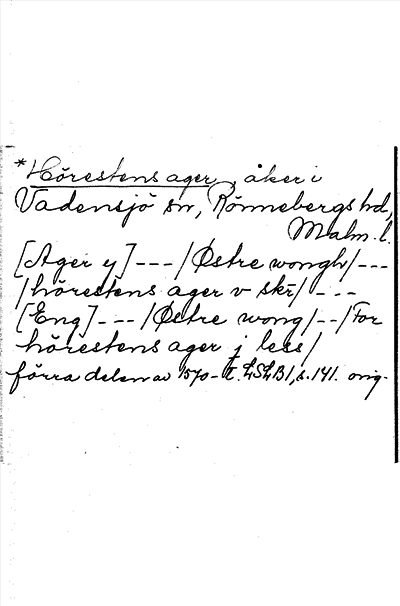 *Hörestens ager, åker i
Vadensjö sn, Rönnebergs hd,
Malm. l.
[Ager y] --- / Østre wongh / ---
/ hörestens ager v skr / ---
[Eng] --- / Østre wong / -- / For
hörestens ager j less /
förra delen av 1570-t. LSLB 1, s. 141. orig.